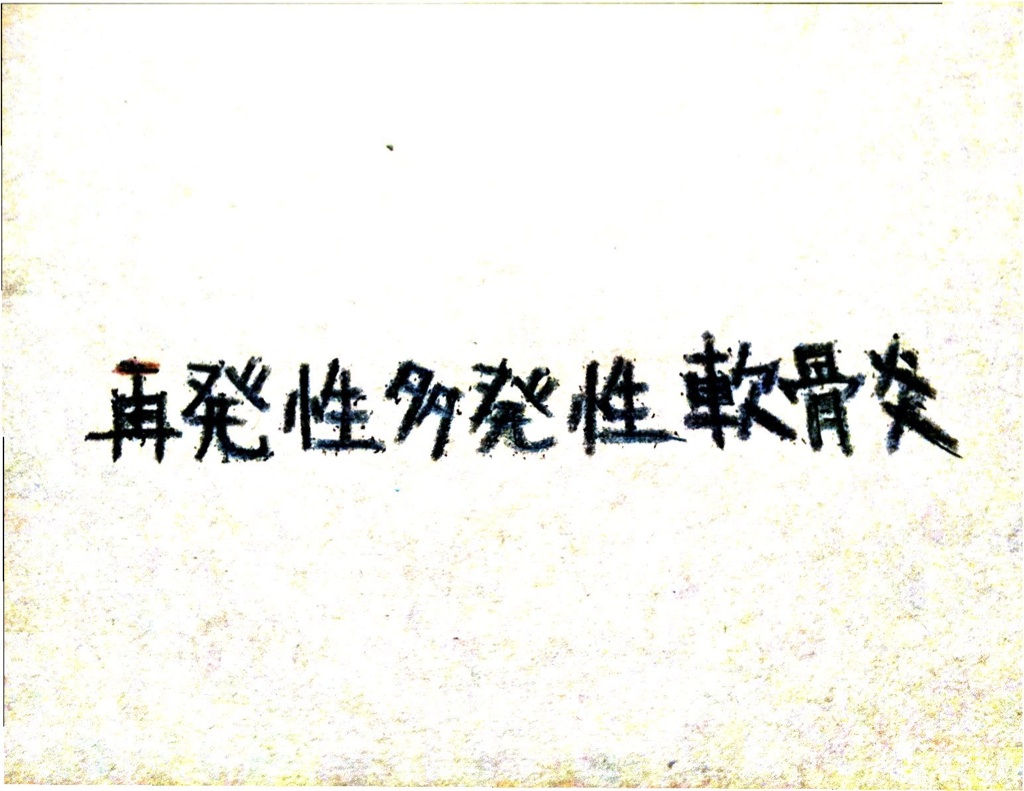 再発性多発性軟骨炎